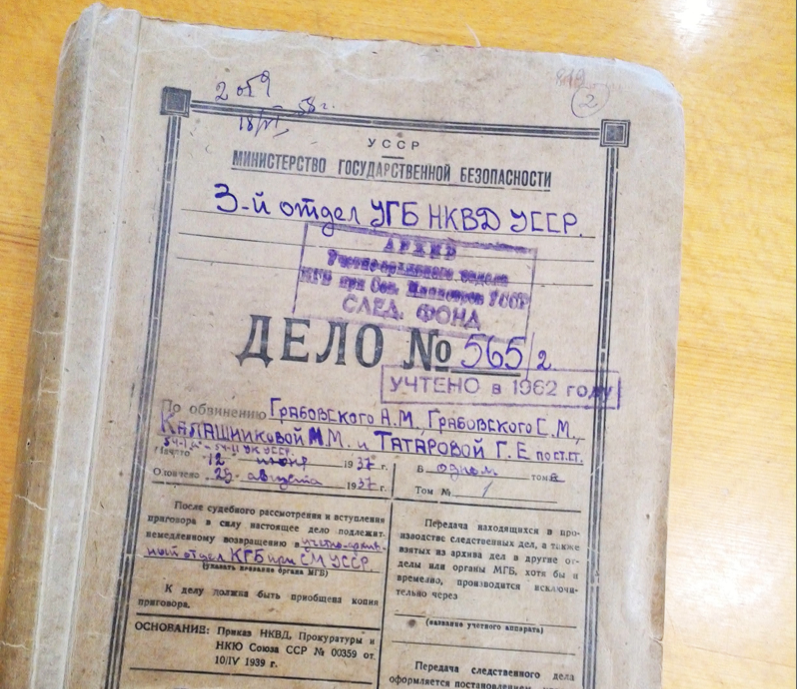 58 г.
2
УССР
МИНИСТЕРСТВО ГОСУДАРСТВЕННОЙ БЕЗОПАСНОСТИ
3-й отдел УГБ НКВД УССР.
АРХИВ
Учетно-архивного отдела
КГБ при Сов. Министров УССР
СЛЕД. ФОНД
ДЕЛО № 565/2
УЧТЕНО в 1962 году
По обвинению Грабовского А.М., Грабовского С.М.,
Калашниковой М.М. и Татаровой Г.Е по ст.ст.
54-11 УК УССР.
Начато 12 1937 г.
Окончено 29 августа 1937 г.
В одном
Том № 1
После судебного рассмотрения и вступления
приговора в силу настоящее дело подлежит
немедленному возвращению в учетно-архив-
ный отдел КГБ при СМ УССР.
(указать название органа МГБ)
К делу должна быть приобщена копия
приговора.
ОСНОВАНИЕ: Приказ НКВД, Прокуратуры и
НКЮ Союза ССР № 00359 от
10/IV 1939 г.
Передача находящихся в про-
изводстве следственных дел, а также
взятых из архива дел в другие от-
делы или органы МГБ, хотя бы и
временно, производится исключи-
тельно через
(название учетного аппарата)
Передача следственного дела
оформляется постановлением